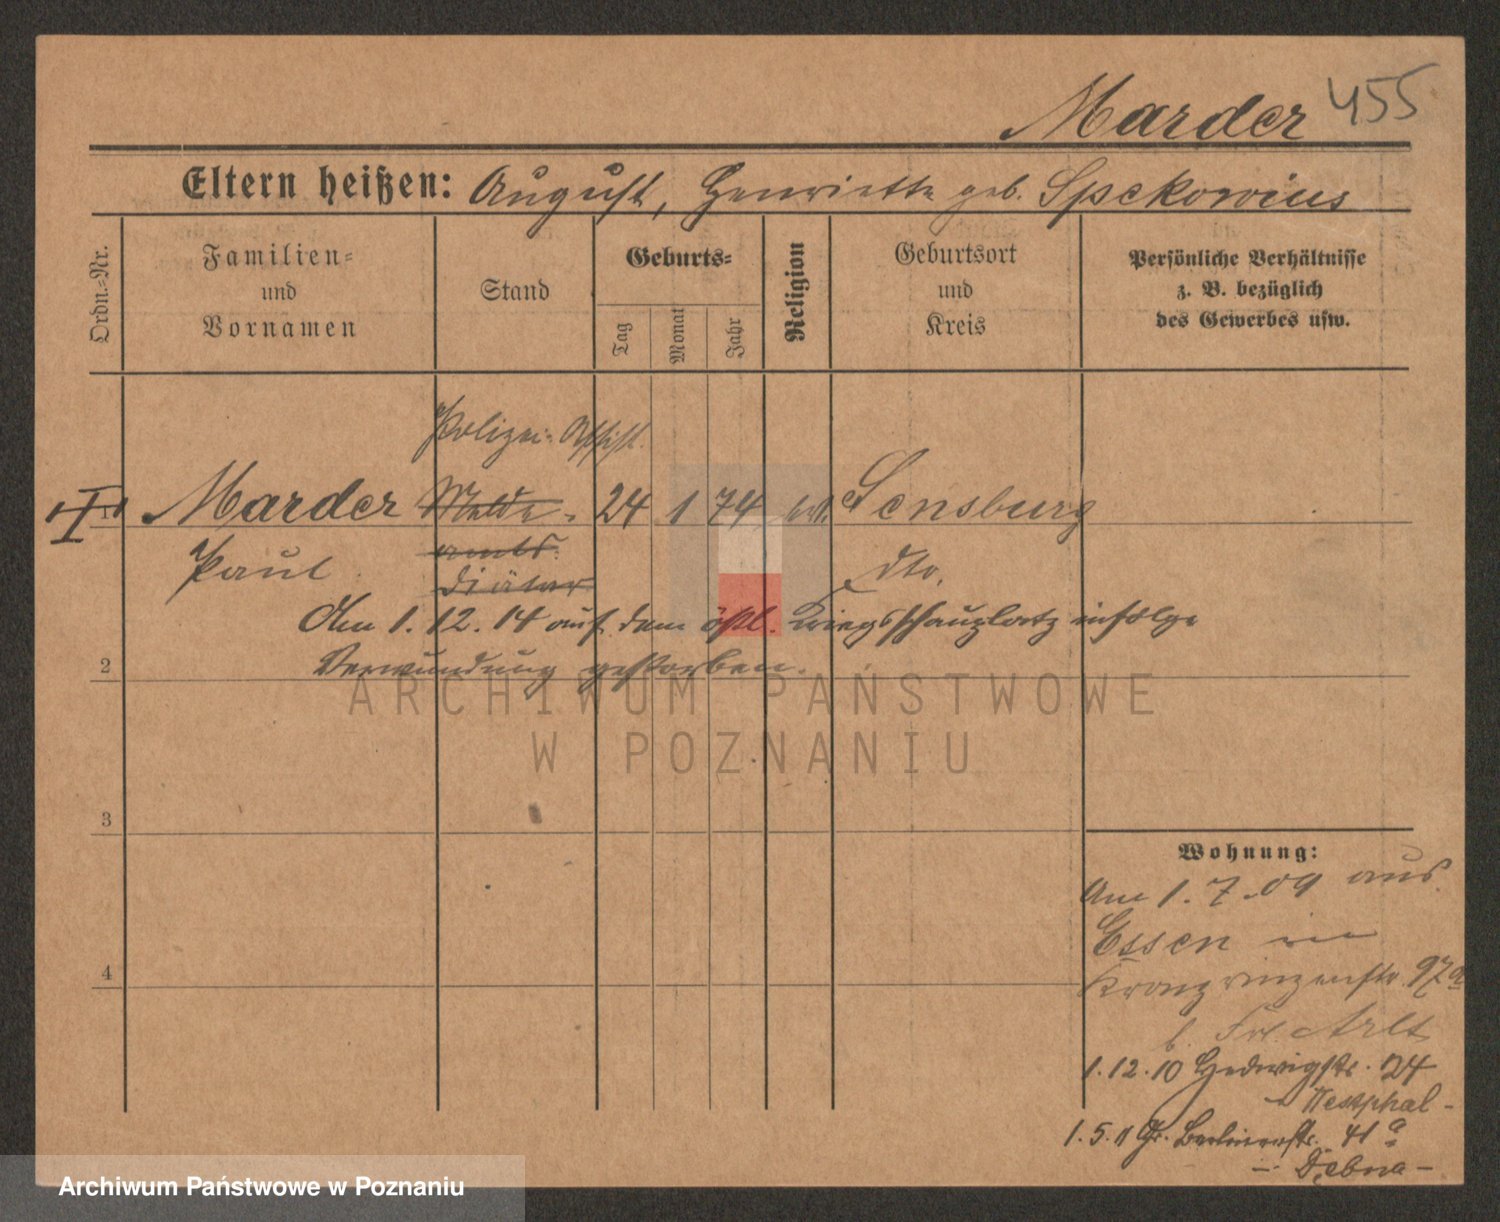 Marder 455
Eltern heißen: August, Henriette geb. Spekowius
Ordn.-Nr.
Familien-
und
Vornamen
Stand
Geburts-
Tag
Monat
Jahr
Religion
Geburtsort
und
Kreis
Persönliche Verhältnisse
z. B. bezüglich
des Gewerbes usw.
Polizei-Assist.
1 Marder Melde- 24 1 74 ev. Sensburg
Paul amts- dto.
Diätar
Am 1. 12. 14 auf dem östl. Kriegsschauplatz infolge
Verwundung gestorben.
2
ARCHIWUM PAŃSTWOWE
W POZNANIU
3
Wohnung:
Am 1. 7. 09 aus
Essen in
4
Kronprinzenstr. 97a
b. Frl. Arlt
1. 12. 10 Hedwigstr. 24
- Westphal -
1. 5. 11 Gr. Berlinerstr. 41a
Archiwum Państwowe w Poznaniu